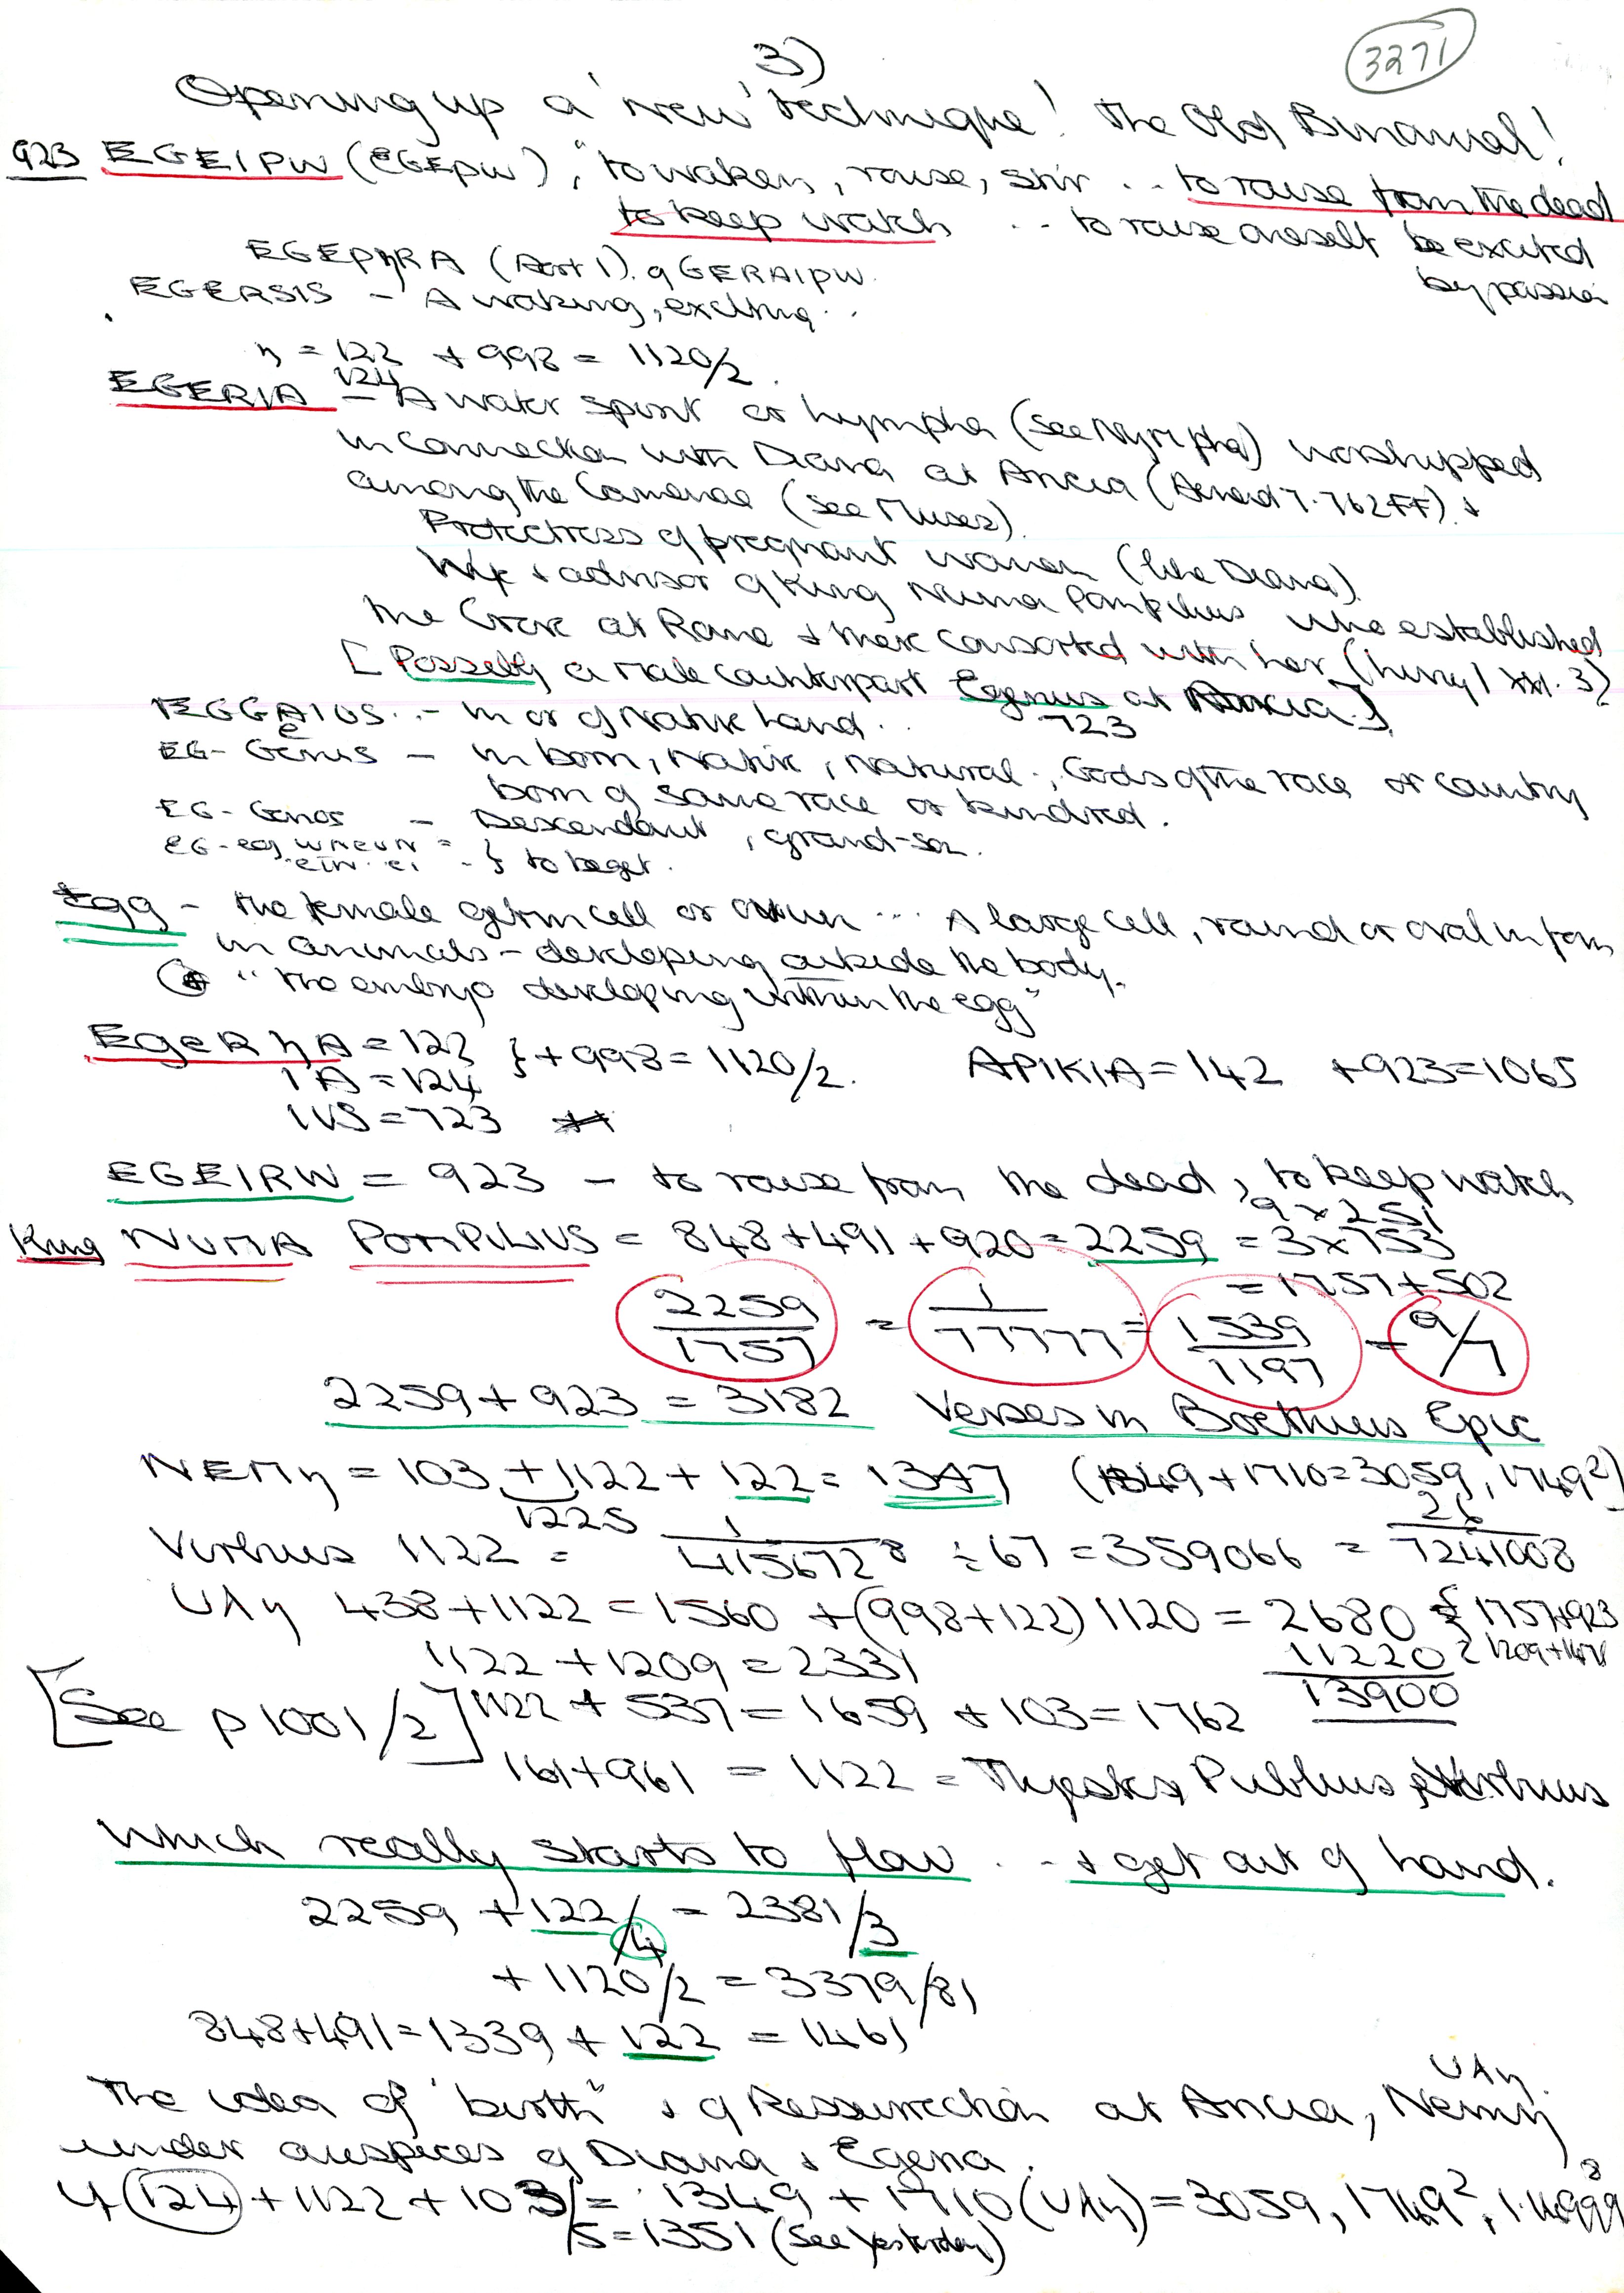 3271
3)
Opening up a 'new' technique! The Old Binomial!
923 EGEIPW (EGEPW), "to waken, rouse, stir .. to raise from the dead
to keep watch .. to rouse oneself be excited
by passion
EGEPηRA (Aor 1). GERAIPW.
EGERSIS - A waking, exciting ..
η = 122 + 998 = 1120/2.
124
EGERIA - A water spirit or Lympha (see Nympha) worshipped
in connection with Diana at Aricia (Aeneid 7.762FF) &
among the Camenae (see Muses).
Protectress of pregnant women (like Diana).
Wife & advisor of King Numa Pompilius who established
the Grove at Rome & there consorted with her (Livy 1 xxi. 3)
[Possibly a male counterpart Egerius at Aricia.]
723
EGGAIOS .. - in or of Native land.
e
EG-Genis - in born, Native, Natural., Gods of the race or country
born of same race or kindred.
EG-Gonos - Descendant, grand-son.
} to beget.
Egg - the female germ cell or ovum ... A large cell, round or oval in form
in animals - developing outside the body.
"the embryo developing within the egg"
EgeR ηA = 122 } + 998 = 1120/2. APIKIA = 142 + 923 = 1065
IA = 124
IVS = 723
EGEIRW = 923 - to raise from the dead, to keep watch
9 x 251
King NUMA POMPILIUS = 848 + 491 + 920 = 2259 = 3 x 753
= 1757 + 502
2259/1757 = 1/77777 = 1539/1197 = 9/7
2259 + 923 = 3182 Verses in Boethius Epic
NEMη = 103 + 1122 + 122 = 1347 (1349 + 1710 = 3059, 1749²)
1225 26
Virbius 1122 = 1/415672⁸ ÷ 67 = 359066 = 7241008
Uλη 438 + 1122 = 1560 + (998 + 122) 1120 = 2680 { 1757+923
1122 + 1209 = 2331 11220 1209+1471
[See p 1001/2] 1122 + 537 = 1659 + 103 = 1762 13900
161 + 961 = 1122 = Thyestes, Publius, Virbius
which really starts to flow .. & get out of hand.
2259 + 122/4 = 2381/3
+ 1120/2 = 3379/81
848 + 491 = 1339 + 122 = 1461
Uλη.
The idea of "birth" & of Ressurrection at Aricia, Nemη
under auspices of Diana & Egeria.
(124) + 1122 + 103/ = 1349 + 1710 (Uλη) = 3059, 1749², 1.14999⁸
/5 = 1351 (See yesterday)